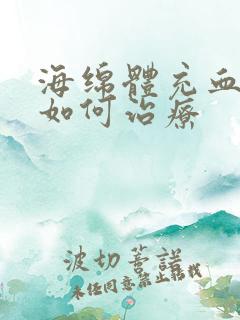 海绵體充血
如何治療
波切菩諾
未经同意禁止搭载